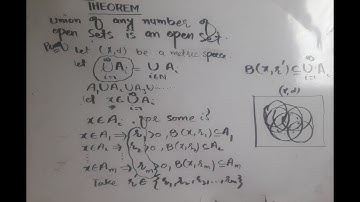 THEOREM
Union of any number of
open sets is an open set.
Proof Let (x,d) be a metric space.
Let ∞∪i=1 Ai = ∪i∈N Ai
A₁∪A₂∪A₃∪...
Let x∈ ∞∪i=1 Ai
x∈Ai for some i
x∈A₁ ⇒ r₁>0, B(x,r₁)⊆A₁
x∈A₂ ⇒ r₂>0, B(x,r₂)⊆A₂
⋮
x∈Am ⇒ rm>0, B(x,rm)⊆Am
Take r∈{r₁,r₂,r₃,...,rm}
B(x,r')⊆ ∞∪i=1 Ai
(x,d)